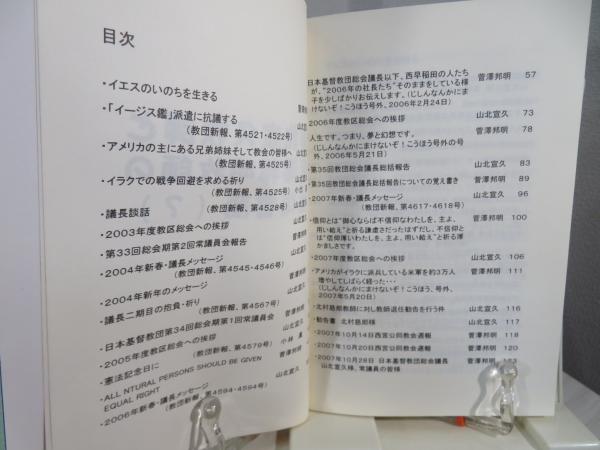 目次
・イエスのいのちを生きる
・「イージス鑑」派遣に抗議する
(教団新報、第4521・4522号)
・アメリカの主にある兄弟姉妹そして教会の皆様へ
(教団新報、第4525号)
・イラクでの戦争回避を求める祈り
(教団新報、第4525号)
・議長談話 (教団新報、第4528号)
・2003年度教区総会への挨拶
・第33回総会期第2回常議員会報告
・2004年新春・議長メッセージ
(教団新報、第4545・4546号)
・2004年新年のメッセージ
・議長二期目の抱負・祈り
(教団新報、第4567号)
・日本基督教団第34回総会期第1回常議員会
・2005年度教区総会への挨拶
(教団新報、第4579号)
・憲法記念日に
・ALL NTURAL PERSONS SHOULD BE GIVEN
EQUAL RIGHT
・2006年新春・議長メッセージ
(教団新報、第4594・4594号)
日本基督教団総会議長以下、西早稲田の人たち
が、"2006年の社長たち"そのままをしている様 菅澤邦明 57
子を少しばかりお伝えします。(じしんなんかにま
けないぞ!こうほう号外、2006年2月24日)
・2006年度教区総会への挨拶 山北宣久 73
人生です。つまり、夢と幻想です。 菅澤邦明 78
(じしんなんかにまけないぞ!こうほう号外の号
外、2006年5月21日)
・第35回教団総会議長総括報告 山北宣久 83
・第35回教団総会議長総括報告についての覚え書き 菅澤邦明 89
・2007年新春・議長メッセージ 山北宣久 96
(教団新報、第4617・4618号)
・信仰とは"御心ならば不信仰なわたしを、主よ、 菅澤邦明 100
用い給え"と祈る謙虚さだったはずだし、不信仰と
は"信仰薄いわたしを、主よ、用い給え"と祈る傲
かましさです。
・2007年度教区総会への挨拶 山北宣久 106
・アメリカがイラクに派兵している米軍を約3万人 菅澤邦明 111
増やしてしばらく経った・・・
(じしんなんかにまけないぞ!こうほう、号外、
2007年5月20日)
・北村慈郎教師に対し教師退任勧告を行う件 山北宣久 116
・勧告書 北村慈郎様 山北宣久 117
・2007年10月14日西宮公同教会週報 菅澤邦明 118
・2007年10月20日西宮公同教会週報 菅澤邦明 120
・2007年10月28日 日本基督教団総会議長 菅澤邦明
山北宣久様、常議員の皆様